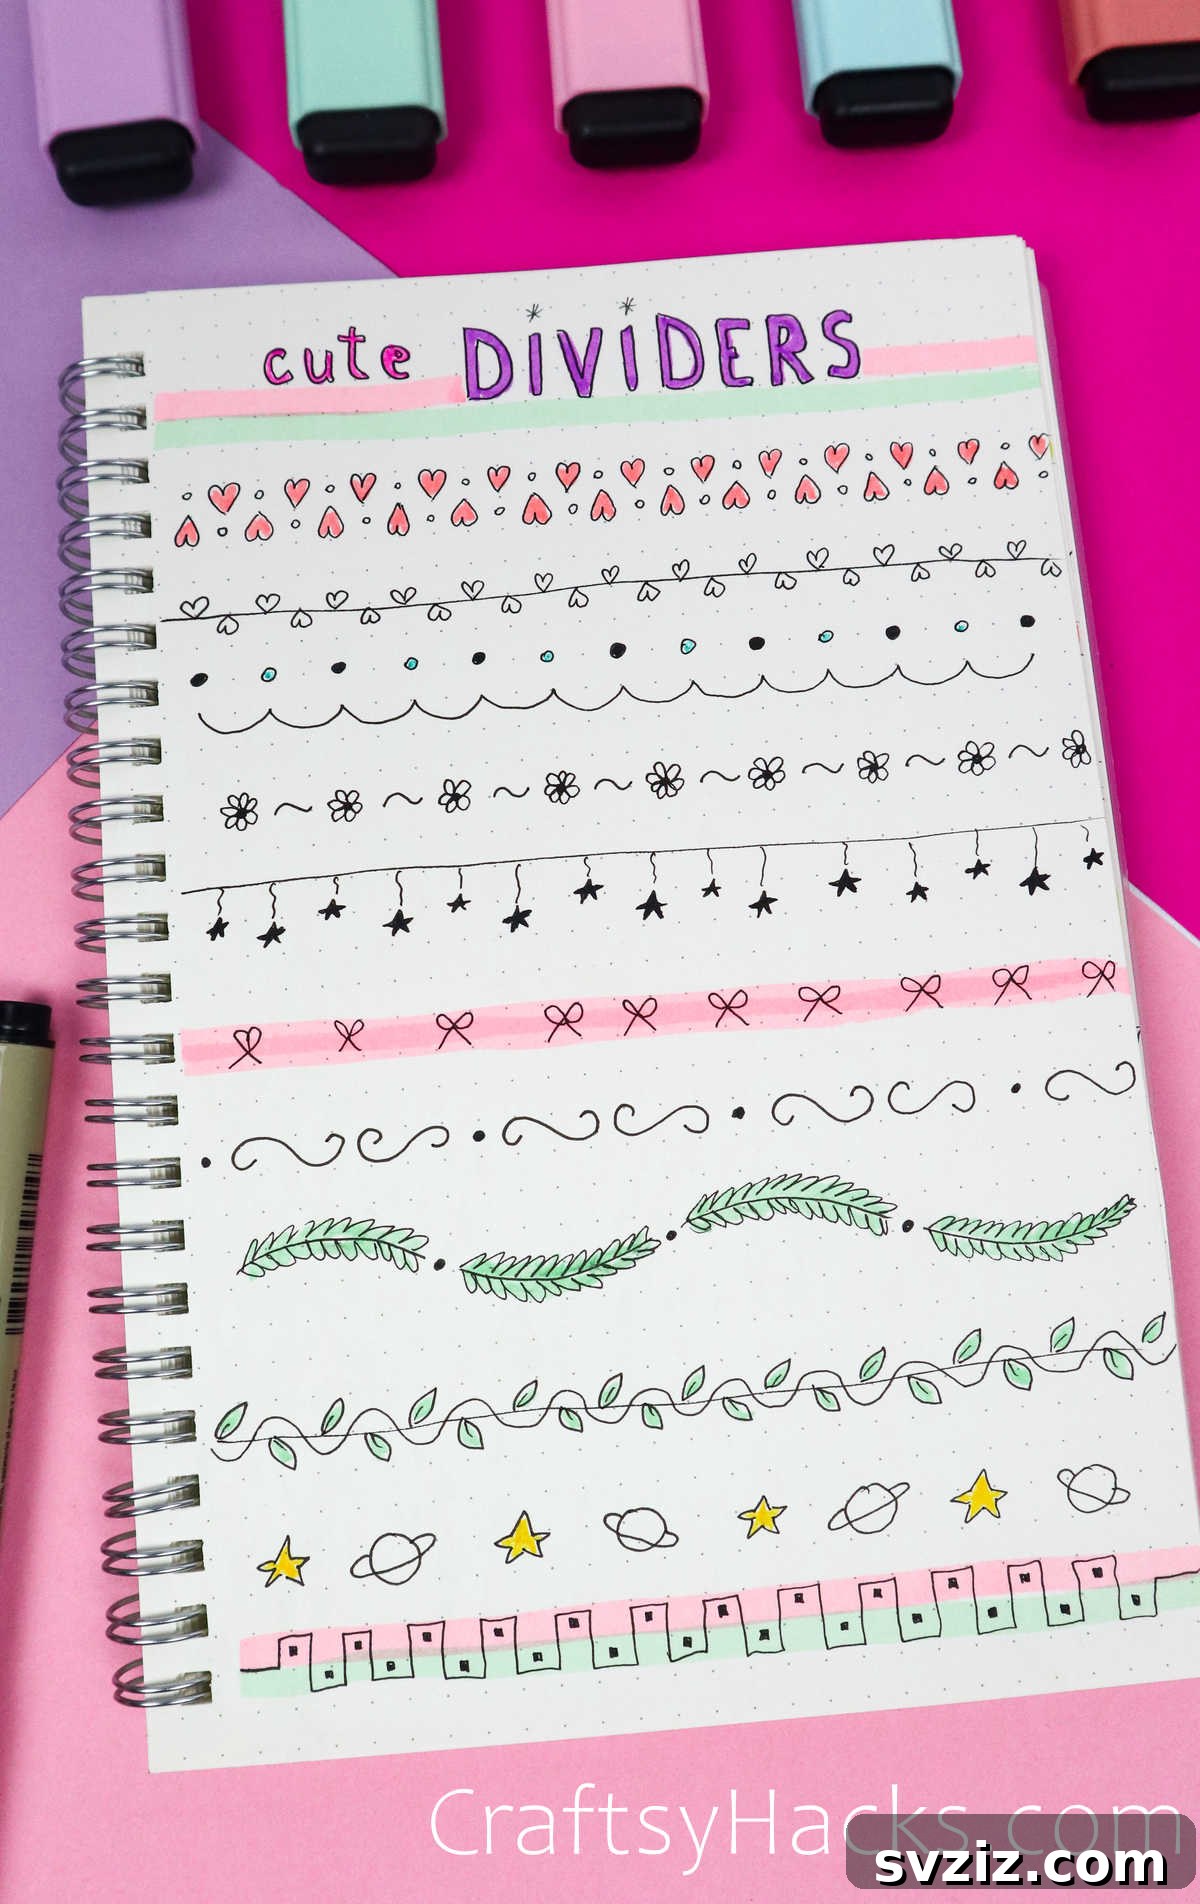 cute DiViDERS
CraftsyHacks.com
svziz.com